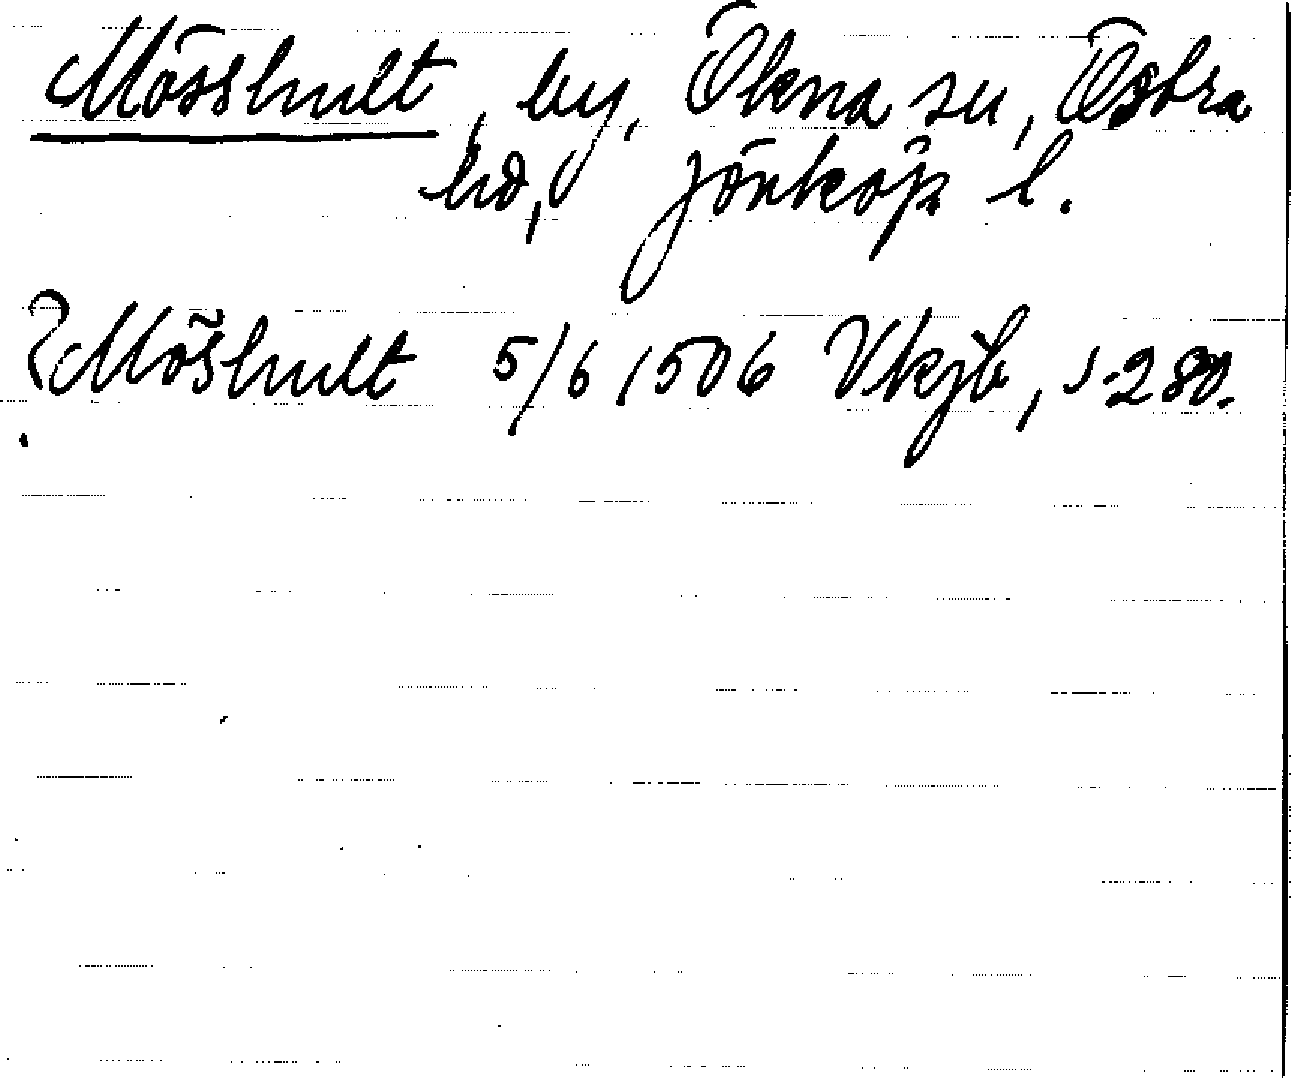 Mösshult, by, Ökna sn, Östra
hd, Jönköp l.
Möshult 5/6 1506 Vkjb, s. 280.